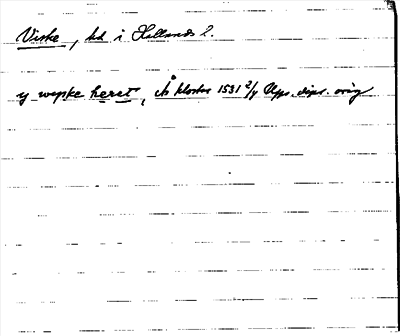 Viske, hd i Hallands l.
y wepske heret, Ås kloster 1531 2/7 Upps. dipl. orig